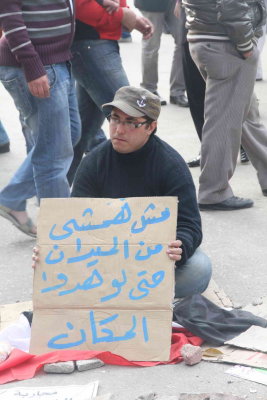 مش همشي
من الميدان
حتى لو هدوا
المكان